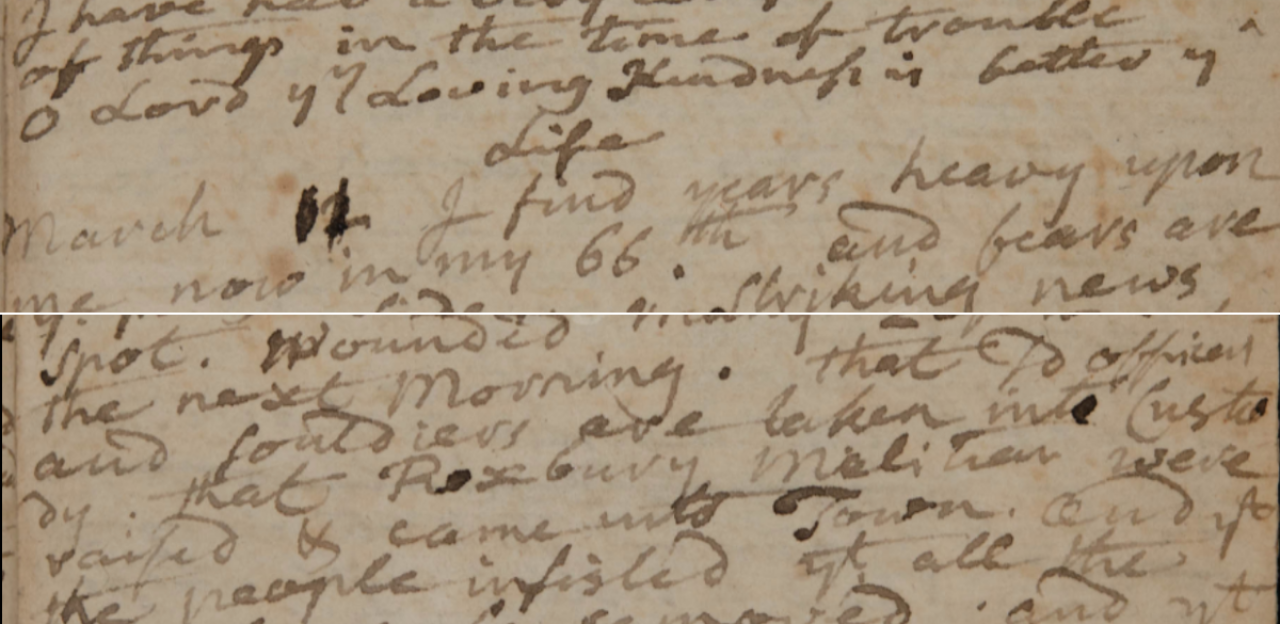 I have had a
of things in the time of trouble
O Lord yͬ Loving Kindness is better yⁿ
Life
March 11 I find years heavy upon
me now in my 66th. and fears are
Striking news
spot. Wounded many
the next Morning. that sd officers
and souldiers are taken into Custo
dy. that Roxbury Melitiar were
raised & came into Town. and yt
the people insisted yt all the
removed. and yt